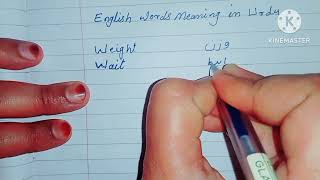 English Words Meaning in Urdu
KINEMASTER
Weight وزن
Wait
GLA